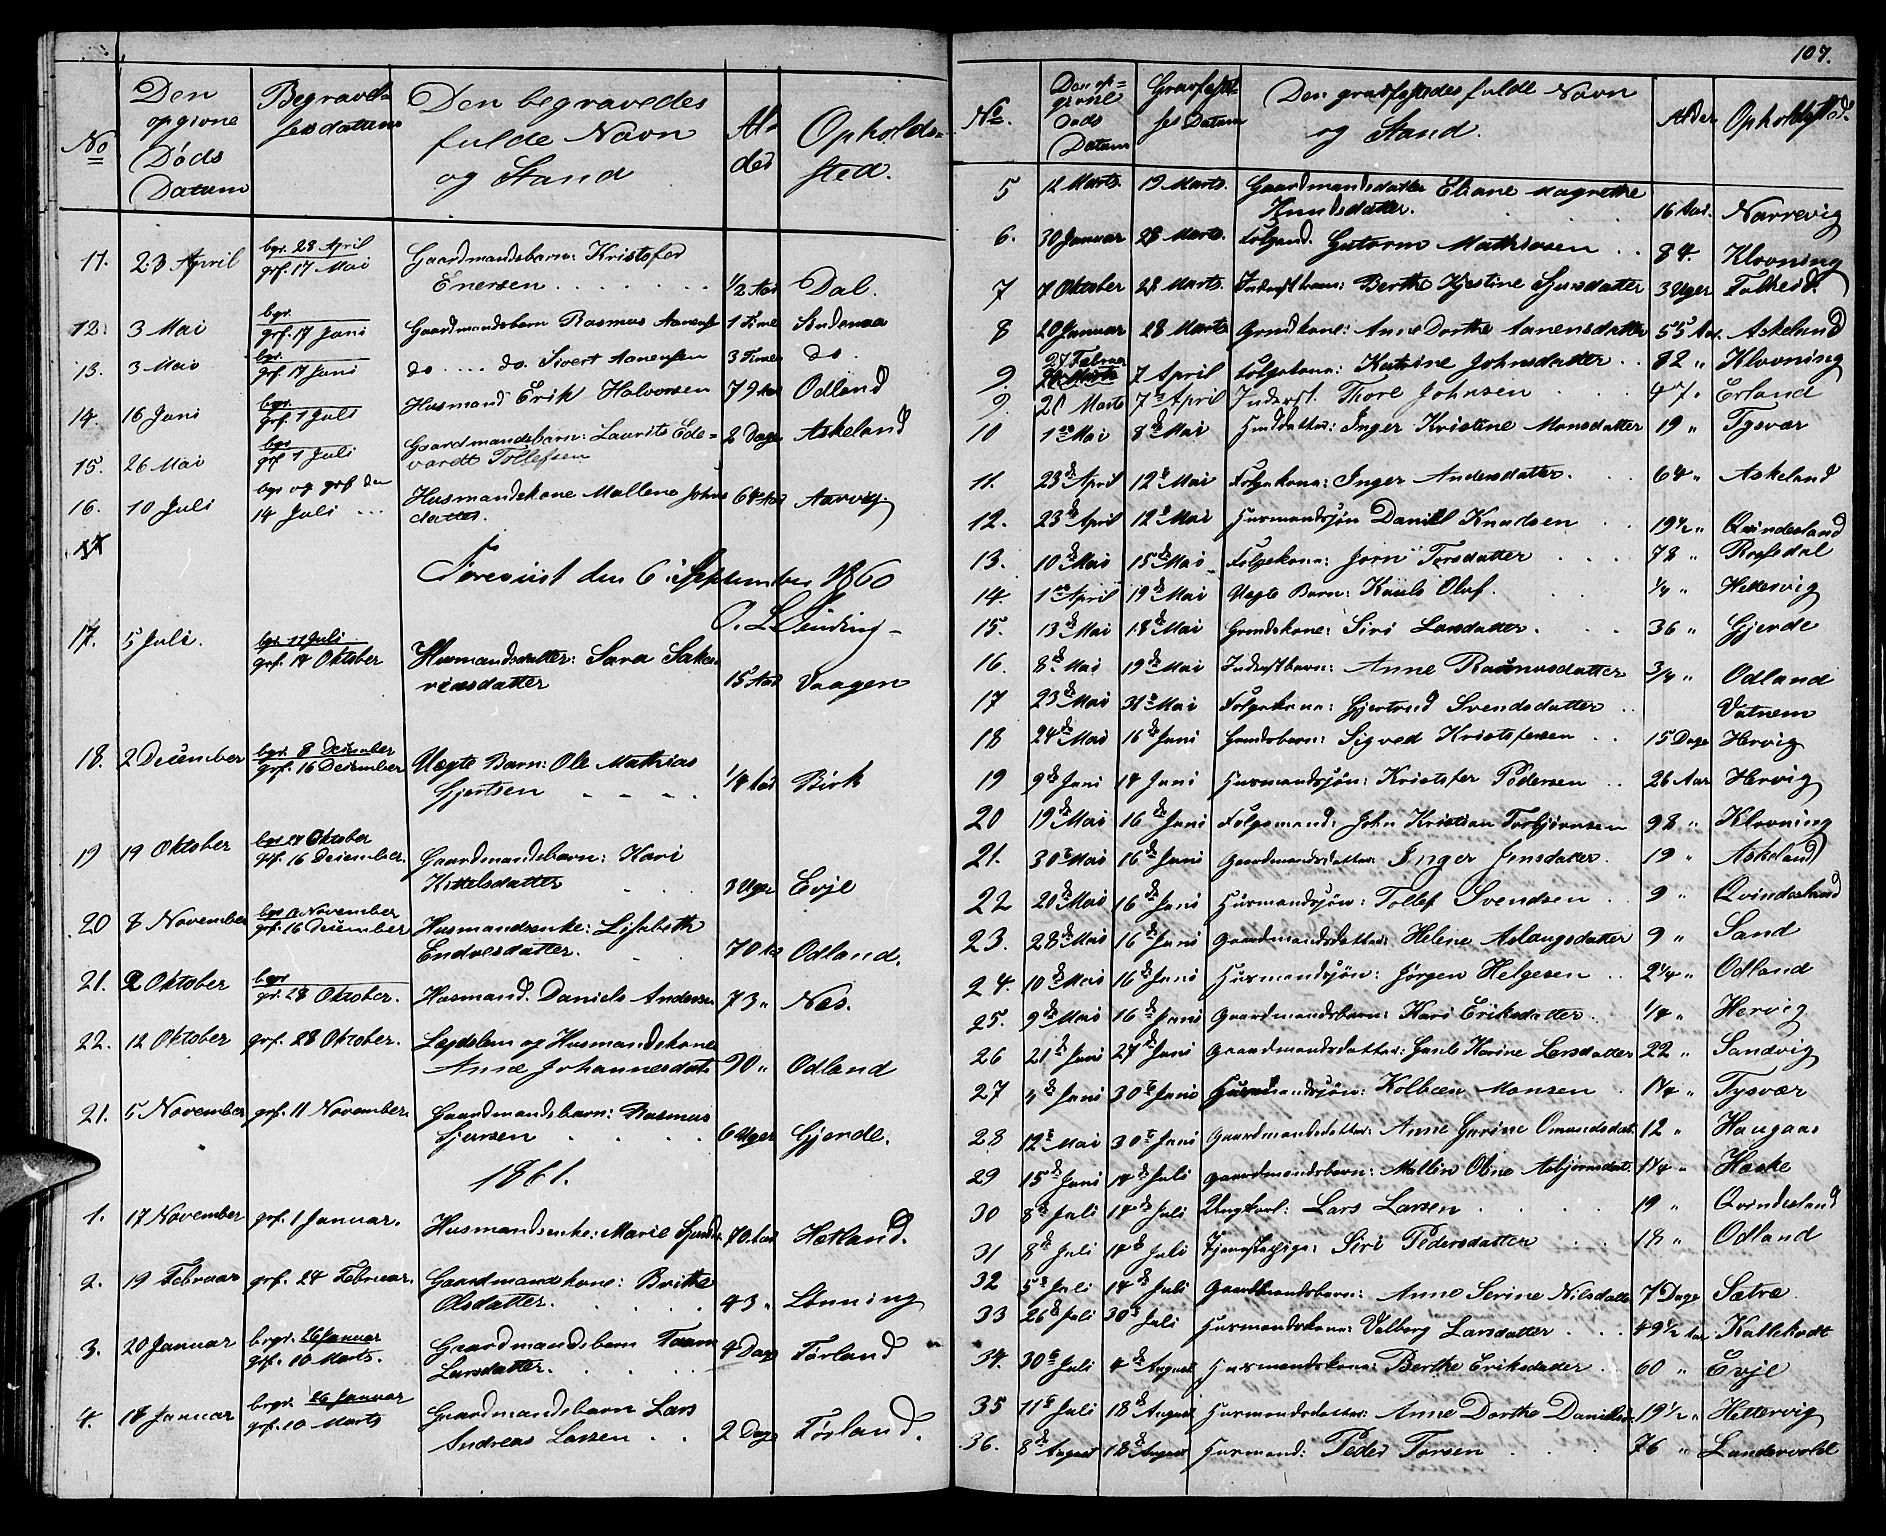 107.
No
Den opgivne Døds Datum
Begravelsesdatum
Den begravedes fulde Navn og Stand
Alder
Opholdssted.
11. 23 April bgr. 28 April Gaardmandsbarn: Kristofer
grf. 17 Mai Enersen 1/2 Aar Dal.
12. 3 Mai bgr. grf. 17 Juni Gaardmandsbarn Rasmus Aanens 1 Time Sudenaa
13. 3 Mai bgr. grf. 17 Juni do do. Sivert Aanensen 3 Timer do.
14. 16 Juni bgr. grf. 1 Juli Husmand Erik Halvorsen 79 Aar Odland
15. 26 Mai bgr grf 1 Juli Gaardmandsbarn: Laurits Ede=
vardt Tollefsen 2 Dage Askeland
16. 10 Juli bgr og grf den 14 Juli Husmandskone Mallene Johns
datter. 64 Aar Aarvig.
Forevist den 6: September 1860
O. L. Sinding
17. 5 Juli. bgr. 11 Juli grf. 14 Oktober Husmandsdatter: Sara Saka
riasdatter 15 Aar Vaagen
18. 2 December bgr. 8 December Uægte Barn: Ole Mathias
grf. 16 December Gjertsen 1/4 Aar Birk
19 19 Oktober bgr 28 Oktober
grf. 16 December. Gaardmandsbarn: Kari
Kittelsdatter 3 Uger Evje
20 8 November bgr 11 November
grf. 16 December Husmandsenke: Lisabeth
Endresdatter. 70 Aar Odland.
21. 2 Oktober bgr
gr. 28 Oktober. Husmand. Daniels Andersen 73 " Næs.
22. 12 Oktober grf. 28 Oktober. Lægdslem og Husmandskone
Anne Johannesdat. 90 " Odland
21. 5 November grf. 11 November. Gaardmandsbarn: Rasmus
Sjursen 6 Uger Gjerde.
1861.
1. 17 November grf. 1 Januar. Husmandsenke: Marie 70 Aar Hetland.
2. 19 Februar grf. 24 Februar. Gaardmandskone: Brithe
Olsdatter. 43 " Lønning
3. 20 Januar brgr. 26 Januar
grf. 10 Marts. Gaardmandsbarn
Larsdatter. 4 Dage Førland
4. 18 Januar brgr. 26 Januar
grf. 10 Marts Gaardmandsbarn Lars
Andreas Larsen 2 Dage Førland.
No.
Den opgivne Døds Datum
Gravfæstelses Datum
Den gravfæstedes fulde Navn og Stand.
Alder
Opholdssted.
5 12 Marts. 19 Marts. Gaardmandsdatter Eliane Magrethe
Knudsdatter. 16 Aar. Narrevig
6. 30 Januar 28 Marts. Folgemd. Gutorm Mathiasen 84. Klovning
7 7 Oktober 28 Marts. Inderstbarn: Berthe Kjestine Sjursdatter 3 Uger Falkeid.
8 20 Januar 28 Marts Grmdskone: Anne Dorthe Aanensdatter 55 Aar. Askeland
9 27 Februar 7 April Folgekone: Katrine Johnsdatter 82 " Klovning
9. 21 Marts 7de April Inderst. Thore Johnsen 47. Erland
10 1ste Mai 8de Mai Husdatter: Inger Kristine Monsdatter 19 " Tysvær
11. 23de April 12te Mai Folgekone: Inger Andersdatter. 64 " Askeland
12. 23de April 12te Mai Husmandssjøn Daniel Knudsen 19 1/2 " Qvindesland
13. 10de Mai 15de Mai Folgekone: Jorn Torsdatter 78 " Røssdal
14. 1ste April 19de Mai Uægte Barn: Kauls Olaf. 1/4 " Hettervig
15. 13de Mai 18de Mai Grmdskone: Siri Larsdatter. 36 " Gjerde
16. 8de Mai 19de Mai Inderstbarn: Anne Rasmusdatter 3/4 " Odland
17 23de Mai 31te Mai Folgekone: Gjertrud Svendsdatter Vatnem
18 24de Mai 16de Juni Grmdsbarn: Sigved Kristofersen 15 Dage Hervig
19 9de Juni 14 Juni Husmandssjøn: Kristofer Pedersen 26 Aar Hervig
20 19de Mai 16de Juni Folgemand: John Kristian Torbjørnsen 98 " Klovning
21. 30te Mai 16de Juni Gaardmandsdatter: Inger Jensdatter. 19 " Askeland
22 20de Mai 16de Juni Husmandssjøn: Tollef Svendsen 9 " Qvindesland
23. 28de Mai 16de Juni Gaardmandsdatter: Helene Aslaugsdatter 9 " Sand
24. 10de Mai 16de Juni Husmandssjøn: Jørgen Helgesen 2 1/4 " Odland
25. 9de Mai 16de Juni Gaardmandsbarn: Kari Eriksdatter. 1/4 " Hervig
26 21de Juni 27de Juni Gaardmandsdatter: Karine Larsdatter 22 " Sandvig
27 4de Juni 30te Juni Husmandssjøn: Kolbeen Monsen 1 1/4 " Tysvær
28 12te Mai 30te Juni Gaardmandsdatter: Anne Gurine Omundsdat. 12 " Haugaas
29 15de Juni 14de Juli Gaardmandsbarn: Mallin Oline Asbjørnsdat. 1 1/4 " Haske
30 8de Juli 14de Juli Ungkarl: Lars Larsen 19 " Qvindesland
31 8de Juli 14de Juli Tjenestepige: Siri Pedersdatter 18 " Odland
32 5te Juli 14de Juli Gaardmandsbarn: Anne Serine Nilsdatter 7 Dage Sætre.
33 26de Juli 30te Juli Husmandskone: Valborg Larsdatter 49 1/2 Aar
34. 30te Juli 4de August Husmandskone: Berthe Eriksdatter 60 " Evje
35 11te Juli 18de August Husmandsdatter: Anne Dorthe Danielsd. 19 1/2 " Hettervig
36. 8de August 18de August Husmand: Peder Torsen 76 " Landervold